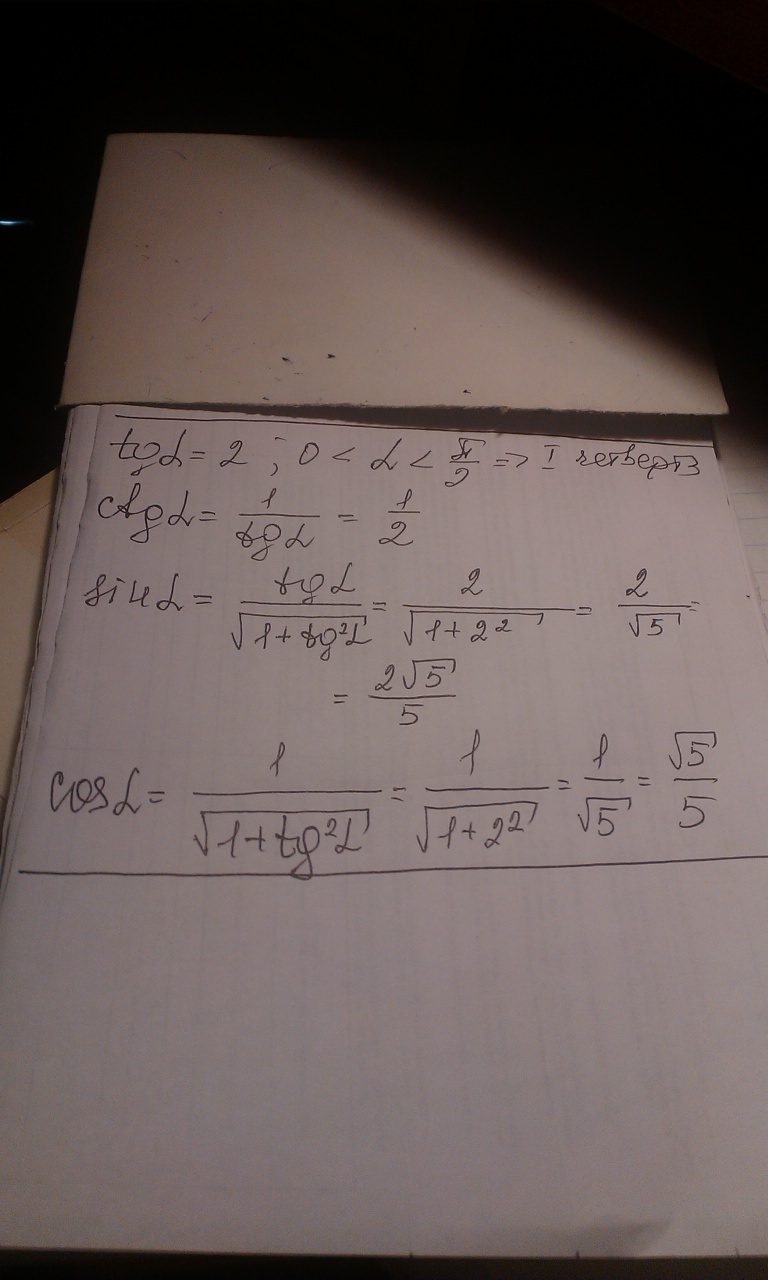 tgα = 2 ; 0 < α < π/2 => I четверть
ctgα = 1/tgα = 1/2
sinα = tgα/√(1+tg²α) = 2/√(1+2²) = 2/√5 =
= 2√5/5
cosα = 1/√(1+tg²α) = 1/√(1+2²) = 1/√5 = √5/5